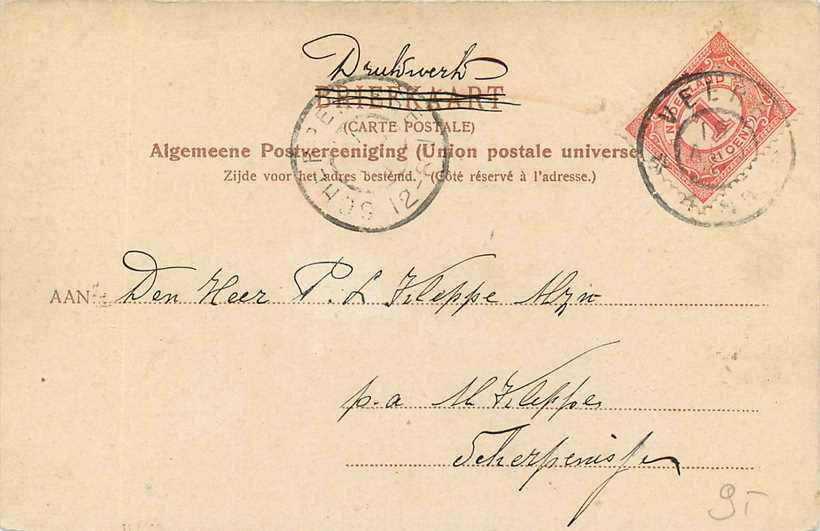 Drukwerk
BRIEFKAART
(CARTE POSTALE)
Algemeene Postvereeniging (Union postale universe
Zijde voor het adres bestemd. (Côté réservé à l'adresse.)
NEDERLAND
1
CENT
VEERE
SCHERPEN
12-8
AAN: Den Heer P. L Kleppe Mzn
p.a M Kleppe
Scherpenisse